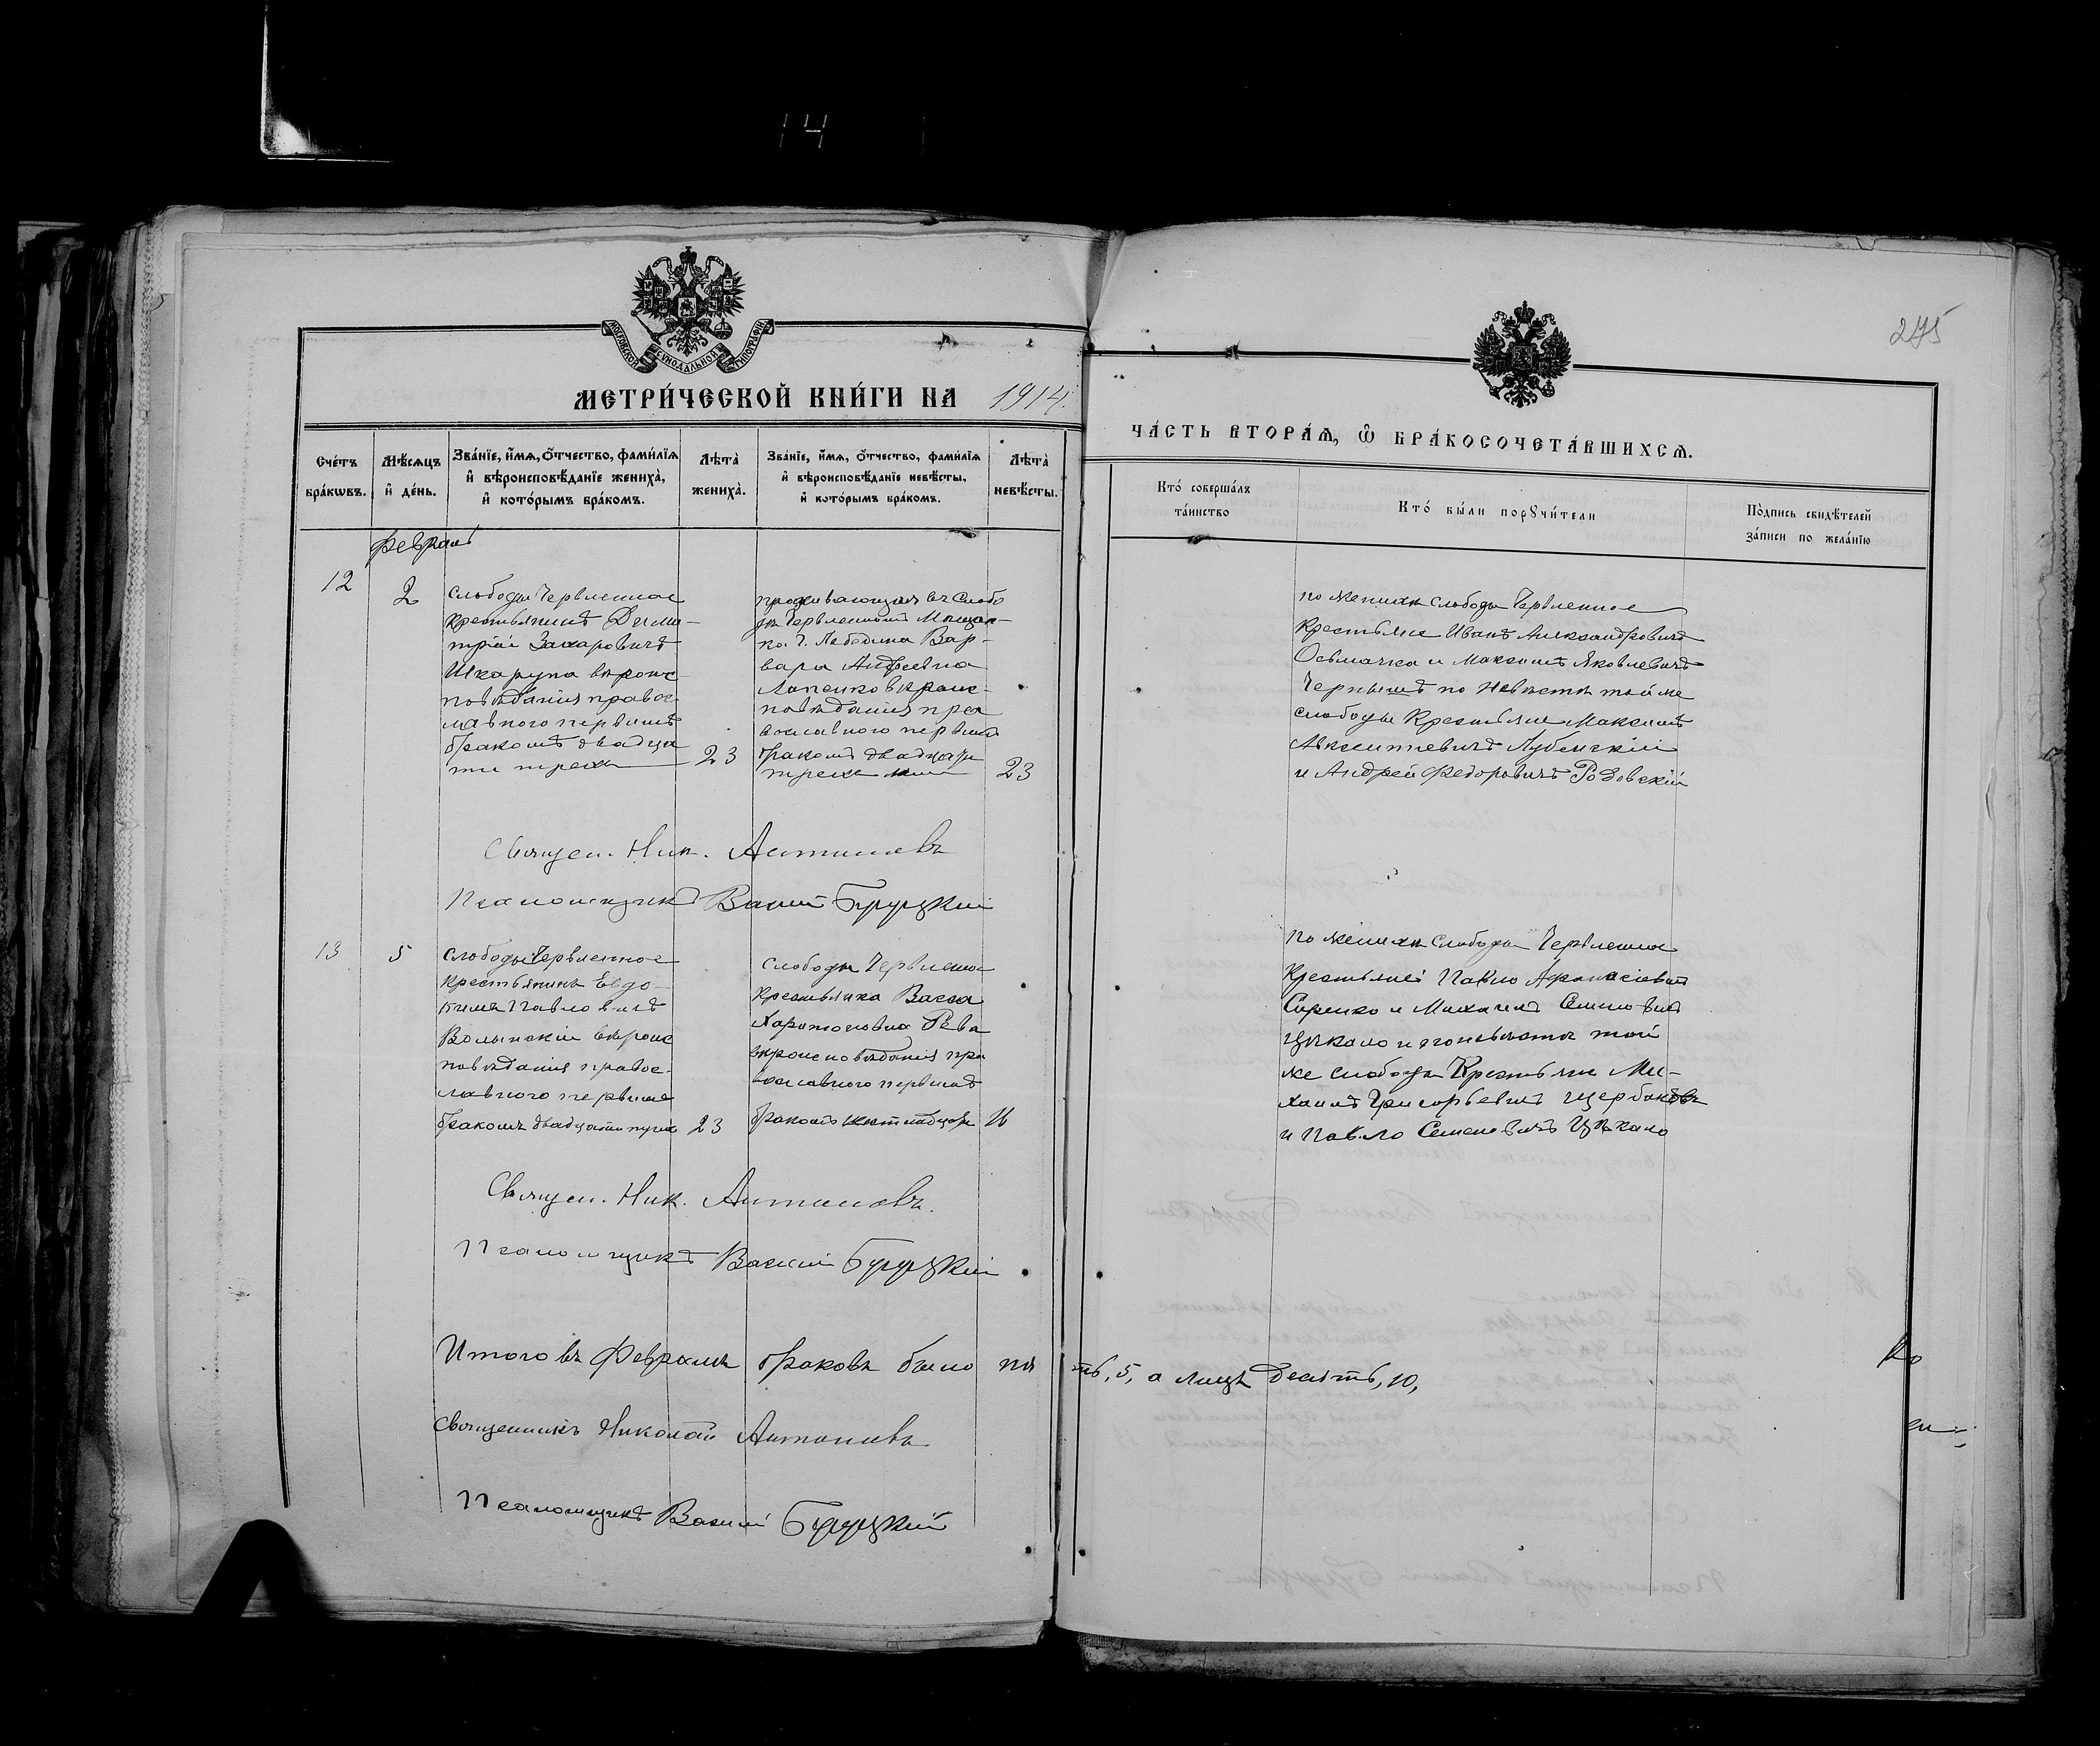 14
МОСКОВСКОЙ СѴНОДАЛЬНОЙ ТИПОГРАФІИ
275
МЕТРИ́ЧЕСКОЙ КНИ́ГИ НА 1914
ЧА́СТЬ ВТОРА́Ѧ, Ѿ БРАКОСОЧЕТА́ВШИХСѦ.
Сче́тъ бра́кѡвъ.
Мѣ́сѧцъ и҆ де́нь.
Зва́нїе, и҆́мѧ, ѻ҆́тчество, фами́лїѧ и҆ вѣроисповѣ́данїе жениха̀, и҆ кото́рымъ бра́комъ.
Лѣта̀ жениха̀.
Зва́нїе, и҆́мѧ, ѻ҆́тчество, фами́лїѧ и҆ вѣроисповѣ́данїе невѣ́сты, и҆ кото́рымъ бра́комъ.
Лѣта̀ невѣ́сты.
Кто́ соверша́лъ та́инство
Кто́ бы́ли порꙋчи́тели
По́дпись свидѣ́телей за́писи по жела́нїю
Февраль
12
2
слободы Червленное
крестьянинъ Дими-
трій Захаровичъ
Шкарупа вѣроис-
повѣданія правос-
лавного первымъ
бракомъ двадца
ти трехъ
23
проживающая въ Слобо
дѣ Червленной Мѣщан-
ка г. Лебедина Вар-
вара Андреевна
Лапенко вѣроис-
повѣданія пра
вославного первымъ
бракомъ двадцати
трехъ лѣтъ
23
по женихѣ слободы Червленное
Крестьяне Иванъ Александровичъ
Осьмачка и Максимъ Яковлевичъ
Чернышъ по невѣстѣ той же
слободы Крестьяне Максимъ
Авксентіевичъ Лубенскій
и Андрей Федоровичъ Родовскій
Священ. Ник. Антоновъ
Псаломщикъ Василій Буруцкій
13
5
слободы Червленное
Крестьянинъ Евдо-
кимъ Павловичъ
Волынскій вѣроис
повѣданія правос-
лавного первымъ
бракомъ двадцати трехъ
23
слободы Червленое
Крестьянка Васса
Харитоновна Рева
вѣроисповѣданія пра
вославного первымъ
бракомъ шестнадцати
16
По женихѣ Слободы Червленное
Крестьяне Павло Афанасіевичъ
Сиренко и Михаилъ Семеновичъ
Цѣкало и по невѣстѣ той
же слободы Крестьяне Ми-
хаилъ Григорьевичъ Щербаковъ
и Павло Семеновичъ Цѣкало
Священ. Ник. Антоновъ.
Псаломщикъ Василій Буруцкій
Итого въ Февралѣ браковъ было пя
ть, 5, а лицъ десять, 10,
Священникъ Николай Антоновъ
Псаломщикъ Василій Буруцкій